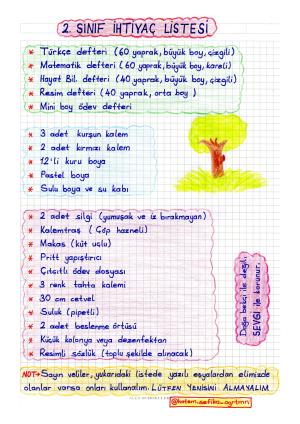 2. SINIF İHTİYAÇ LİSTESİ
* Türkçe defteri (60 yaprak, büyük boy, çizgili)
* Matematik defteri (60 yaprak, büyük boy, kareli)
* Hayat Bil. defteri (40 yaprak, büyük boy, çizgili)
* Resim defteri (40 yaprak, orta boy)
* Mini boy ödev defteri
* 3 adet kurşun kalem
* 2 adet kırmızı kalem
* 12'li kuru boya
* Pastel boya
* Sulu boya ve su kabı
* 2 adet silgi (yumuşak ve iz bırakmayan)
* Kalemtraş (Çöp hazneli)
* Makas (küt uçlu)
* Pritt yapıştırıcı
* Çıtçıtlı ödev dosyası
* 3 renk tahta kalemi
* 30 cm cetvel
* Suluk (pipetli)
* 2 adet beslenme örtüsü
* Küçük kolonya veya dezenfektan
* Resimli sözlük (toplu şekilde alınacak)
Doğa bekçi ile değil,
SEVGİ ile korunur.
NOT→ Sayın veliler, yukarıdaki listede yazılı eşyalardan elimizde
olanlar varsa onları kullanalım. LÜTFEN YENİSİNİ ALMAYALIM